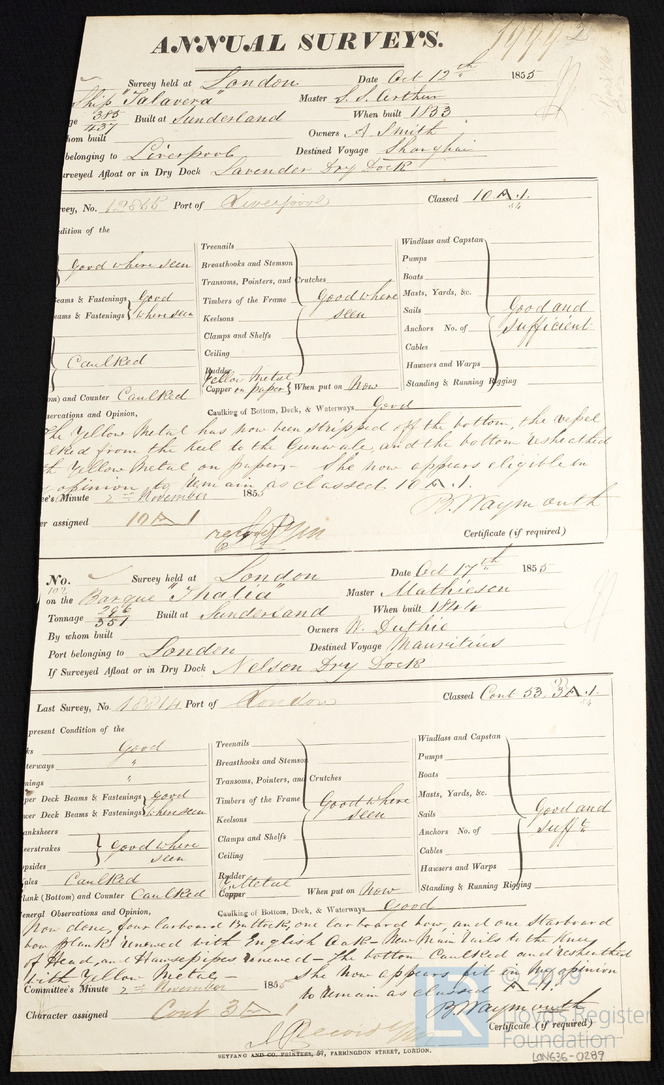 ANNUAL SURVEYS.
Survey held at London Date Oct 12th 1855
Ship "Talavera" Master S. S. Arthur
385
437 Built at Sunderland When built 1833
hom built Owners A Smith
belonging to Liverpool Destined Voyage Shanghai
urveyed Afloat or in Dry Dock Lavender Dry Dock
rvey, No. 12865 Port of Liverpool Classed 10 A. 1.
54
dition of the
Treenails Windlass and Capstan
Good where seen Breasthooks and Stemson Pumps
Transoms, Pointers, and Crutches Boats
Beams & Fastenings Good Timbers of the Frame Good where Masts, Yards, &c.
eams & Fastenings where seen Keelsons seen Sails Good and
Clamps and Shelfs Anchors No. of sufficient
Caulked Ceiling Cables
Rudder Hawsers and Warps
Yellow Metal
om) and Counter Caulked Copper on paper When put on Now Standing & Running Rigging
servations and Opinion, Caulking of Bottom, Deck, & Waterways Good
The Yellow Metal has now been stripped off the bottom, the vessel
lked from the Keel to the Gunwale, and the bottom resheathed
th Yellow Metal on paper,- She now appears eligible in
opinion to remain as classed 10 A. 1.
ee's Minute 2nd November 1855 B. Waymouth
er assigned 10 A 1
Certificate (if required)
No. Survey held at London Date Oct 17th 1855
on the Barque "Thalia" Master Mathieson
Tonnage 296
351 Built at Sunderland When built 1844
By whom built Owners W. Duthie
Port belonging to London Destined Voyage Mauritius
If Surveyed Afloat or in Dry Dock Nelson Dry Dock
Last Survey, No. 10014 Port of London Classed Cont 53 3 A. 1.
54
present Condition of the
ks Good Treenails Windlass and Capstan
terways " Breasthooks and Stemson Pumps
nings " Transoms, Pointers, and Crutches Boats
per Deck Beams & Fastenings good Timbers of the Frame Good where Masts, Yards, &c.
wer Deck Beams & Fastenings where seen Keelsons seen Sails Good and
anksheers Clamps and Shelfs Anchors No. of Sufft
eerstrakes Good where Ceiling Cables
opsides seen Rudder Hawsers and Warps
ales Caulked Y. Metal
lank (Bottom) and Counter Caulked Copper When put on Now Standing & Running Rigging
eneral Observations and Opinion, Caulking of Bottom, Deck, & Waterways Good
Now done, four larboard Buttock, one larboard bow, and one Starboard
bow plank renewed with English Oak- New Main rails to the Knee
of Head, and Hawsepipes renewed- The bottom Caulked and resheathed
with Yellow Metal- She now appears fit in my opinion
Committee's Minute 2nd November 1855 to remain as classed A. 1.
Character assigned Cont 3 A 1 B. Waymouth
Certificate (if required)
SEYFANG AND CO, PRINTERS, 57, FARRINGDON STREET, LONDON.
© 2019
Lloyd's Register
Foundation
LON636-0289